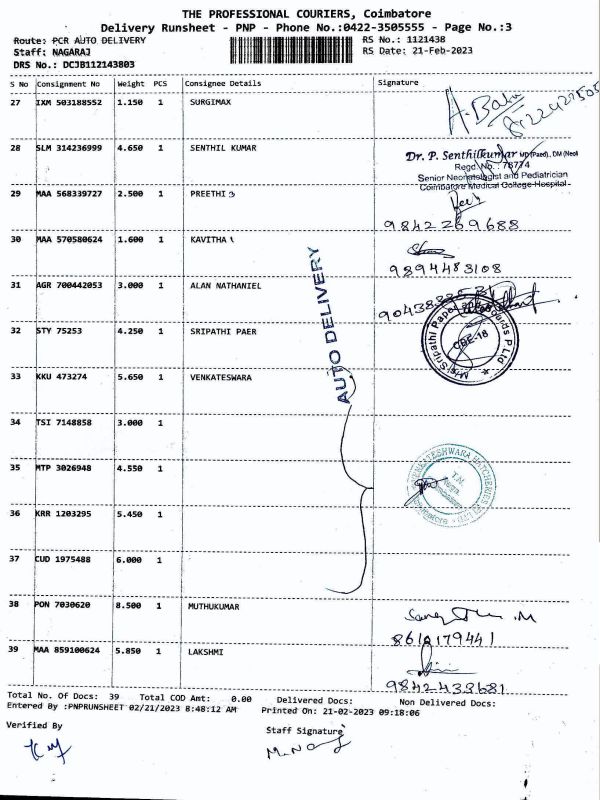 THE PROFESSIONAL COURIERS, Coimbatore
Delivery Runsheet - PNP - Phone No.:0422-3505555 - Page No.:3
Route: PCR AUTO DELIVERY
RS No.: 1121438
Staff: NAGARAJ
RS Date: 21-Feb-2023
DRS No.: DCJB112143803
S No Consignment No Weight PCS Consignee Details Signature
27 IXM 503188552 1.150 1 SURGIMAX
A. Babu
28 SLM 314236999 4.650 1 SENTHIL KUMAR
Dr. P. Senthilkumar MD (Paed)., DM (Neo)
Regd. No.: 76774
Senior Neonatologist and Pediatrician
Coimbatore Medical College Hospital
29 MAA 568339727 2.500 1 PREETHI
9842269688
30 MAA 570580624 1.600 1 KAVITHA
9894483108
31 AGR 700442053 3.000 1 ALAN NATHANIEL
AUTO DELIVERY
32 STY 75253 4.250 1 SRIPATHI PAER
M/s. Sripathi Paper and Boards P Ltd
CBE-18
33 KKU 473274 5.650 1 VENKATESWARA
34 TSI 7148858 3.000 1
35 MTP 3026948 4.550 1
VENKATESHWARA HATCHERIES
T.N.
Coimbatore
36 KRR 1203295 5.450 1
37 CUD 1975488 6.000 1
38 PON 7030620 8.500 1 MUTHUKUMAR
8610179441
39 MAA 859100624 5.850 1 LAKSHMI
9842433681
Total No. Of Docs: 39 Total COD Amt: 0.00 Delivered Docs: Non Delivered Docs:
Entered By :PNPRUNSHEET 02/21/2023 8:48:12 AM Printed On: 21-02-2023 09:18:06
Verified By
Staff Signature